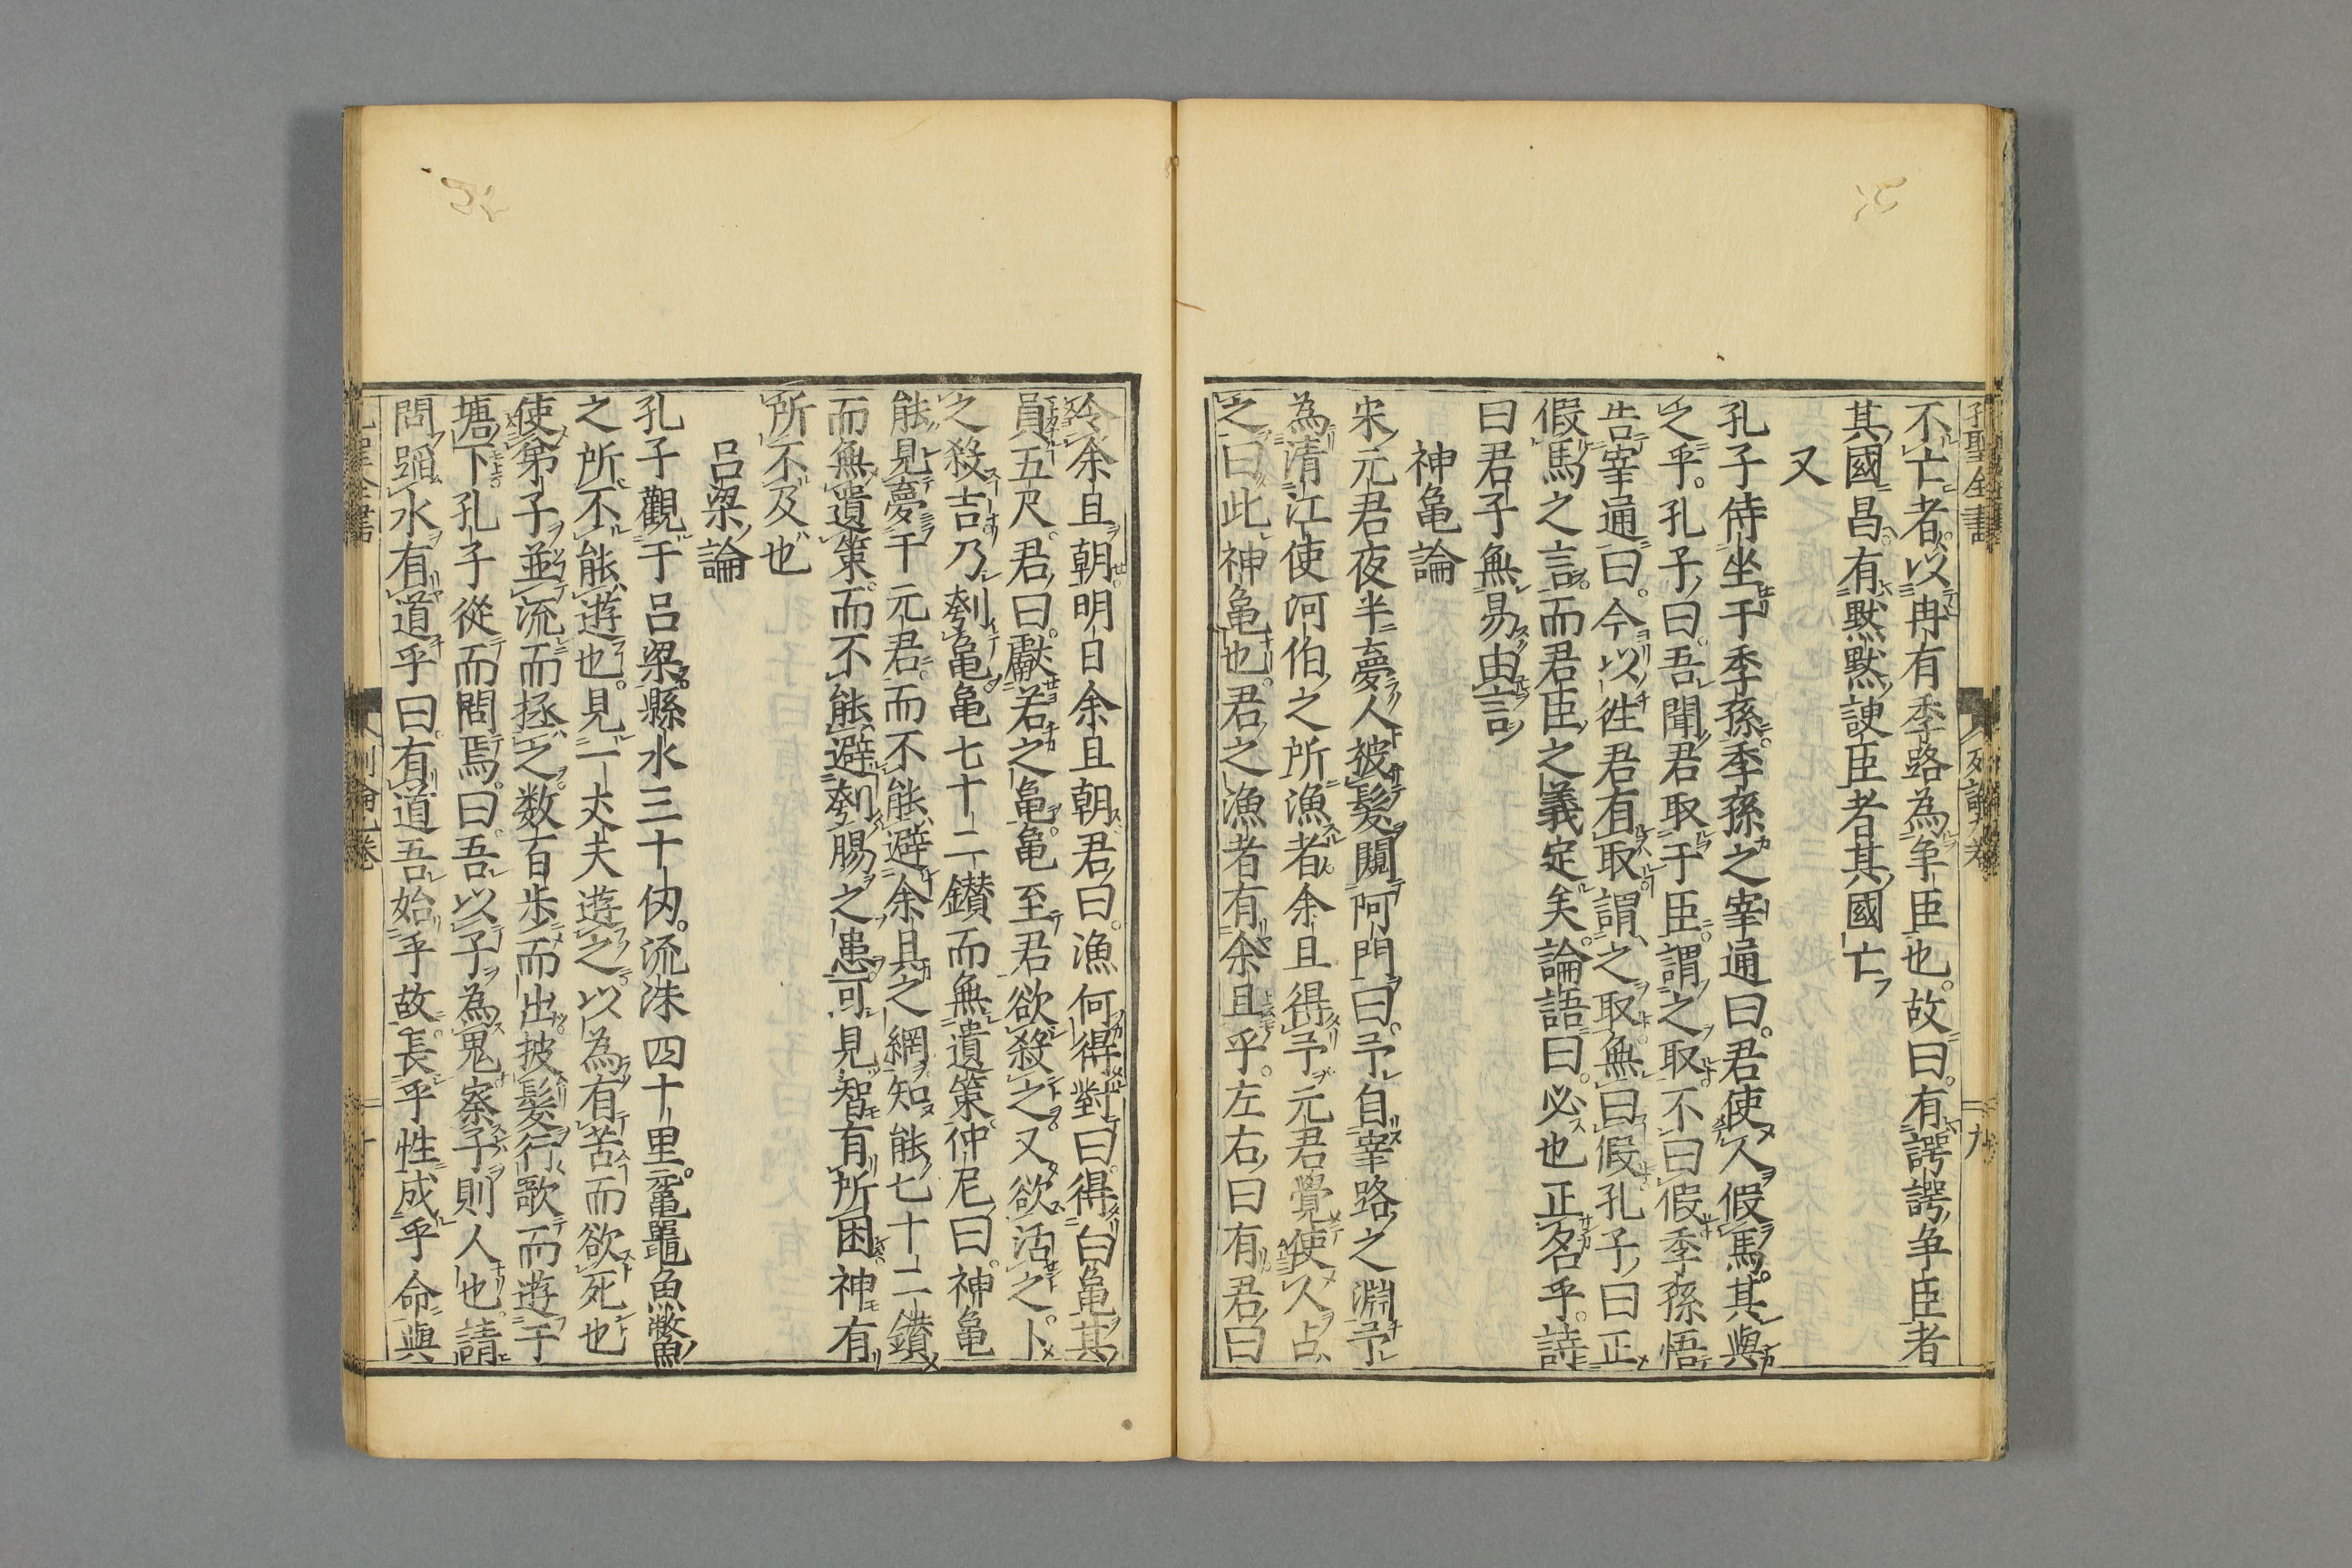 孔聖全書
不亡者以冉有季路為争臣也故曰有諤諤争臣者
其國昌有黙黙諛臣者其國亡
又
孔子侍坐于季孫季孫之宰通曰君使人假馬其與
之乎孔子曰吾聞君取于臣謂之取不曰假季孫悟
告宰通曰今以徃君有取謂之取無曰假孔子曰正
假馬之言而君臣之義定矣論語曰必也正名乎詩
曰君子無易由言
神亀論
宋元君夜半夢人披髮闚阿門曰予自宰路之淵予
為清江使河伯之所漁者余且得予元君覺使人占
之曰此神亀也君之漁者有余且乎左右曰有君曰
令余且朝明日余且朝君曰漁何得對曰得白亀其
員五尺君曰獻若之亀亀至君欲殺之又欲活之卜
之殺吉乃刳亀亀七十二鑚而無遺筞仲尼曰神亀
能見夢于元君而不能避余且之網知能七十二鑚
而無遺筞而不能避刳腸之患可見智有所困神有
所不及也
吕梁論
孔子觀于吕梁縣水三十仭流沫四十里黿鼉魚鱉
之所不能遊也見一丈夫遊之以為有苦而欲死也
使第子並流而拯之数百歩而出披髮行歌而遊于
塘下孔子從而問焉曰吾以子為鬼察子則人也請
問蹈水有道乎曰有道吾始乎故長乎性成乎命與